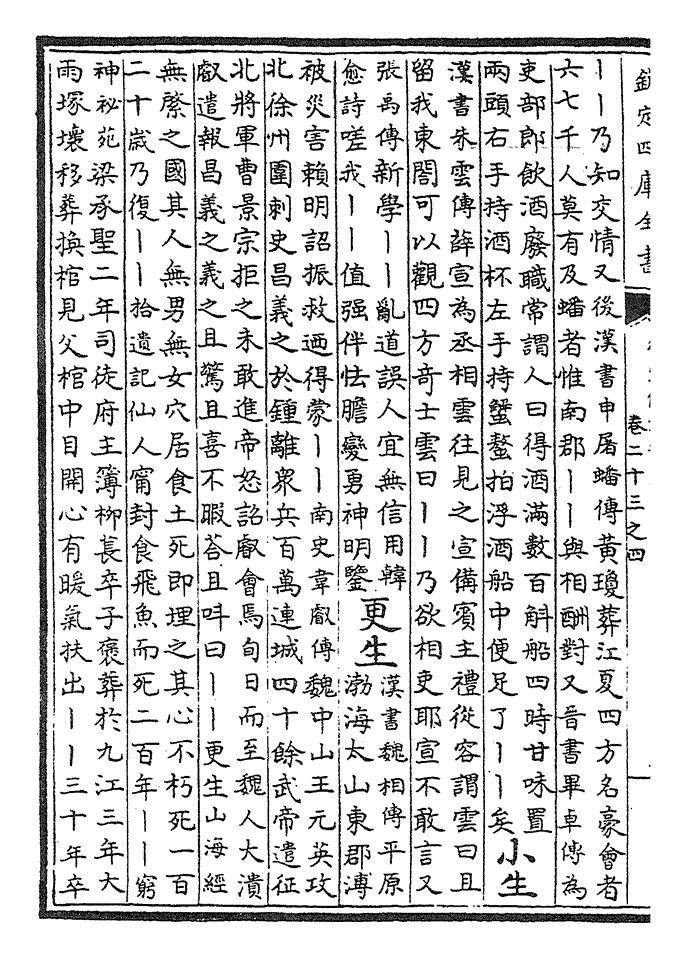 欽定四庫全書
卷二十三之四
丨丨乃知交情又後漢書申屠蟠傳黃瓊葬江夏四方名豪會者
六七千人莫有及蟠者惟南郡丨丨與相酬對又晉書畢卓傳為
吏部郎飲酒廢職常謂人曰得酒滿數百斛船四時甘味置
兩頭右手持酒杯左手持蟹螯拍浮酒船中便足了丨丨矣
小生
漢書朱雲傳薛宣為丞相雲往見之宣備賓主禮從容謂雲曰且
留我東閤可以觀四方奇士雲曰丨丨乃欲相吏耶宣不敢言又
張禹傳新學丨丨亂道誤人宜無信用韓
愈詩嗟我丨丨值强伴怯膽變勇神明鑒
更生
漢書魏相傳平原
渤海太山東郡溥
被災害賴明詔振救迺得蒙丨丨南史韋叡傳魏中山王元英攻
北徐州圍刺史昌義之於鍾離衆兵百萬連城四十餘武帝遣征
北將軍曹景宗拒之未敢進帝怒詔叡會焉旬日而至魏人大潰
叡遣報昌義之義之且驚且喜不暇荅且呌曰丨丨更生山海經
無䏿之國其人無男無女穴居食土死即埋之其心不朽死一百
二十歲乃復丨丨拾遺記仙人甯封食飛魚而死二百年丨丨窮
神祕苑梁承聖二年司徒府主簿柳萇卒子褒葬於九江三年大
雨塚壞移葬換棺見父棺中目開心有暖氣扶出丨丨三十年卒